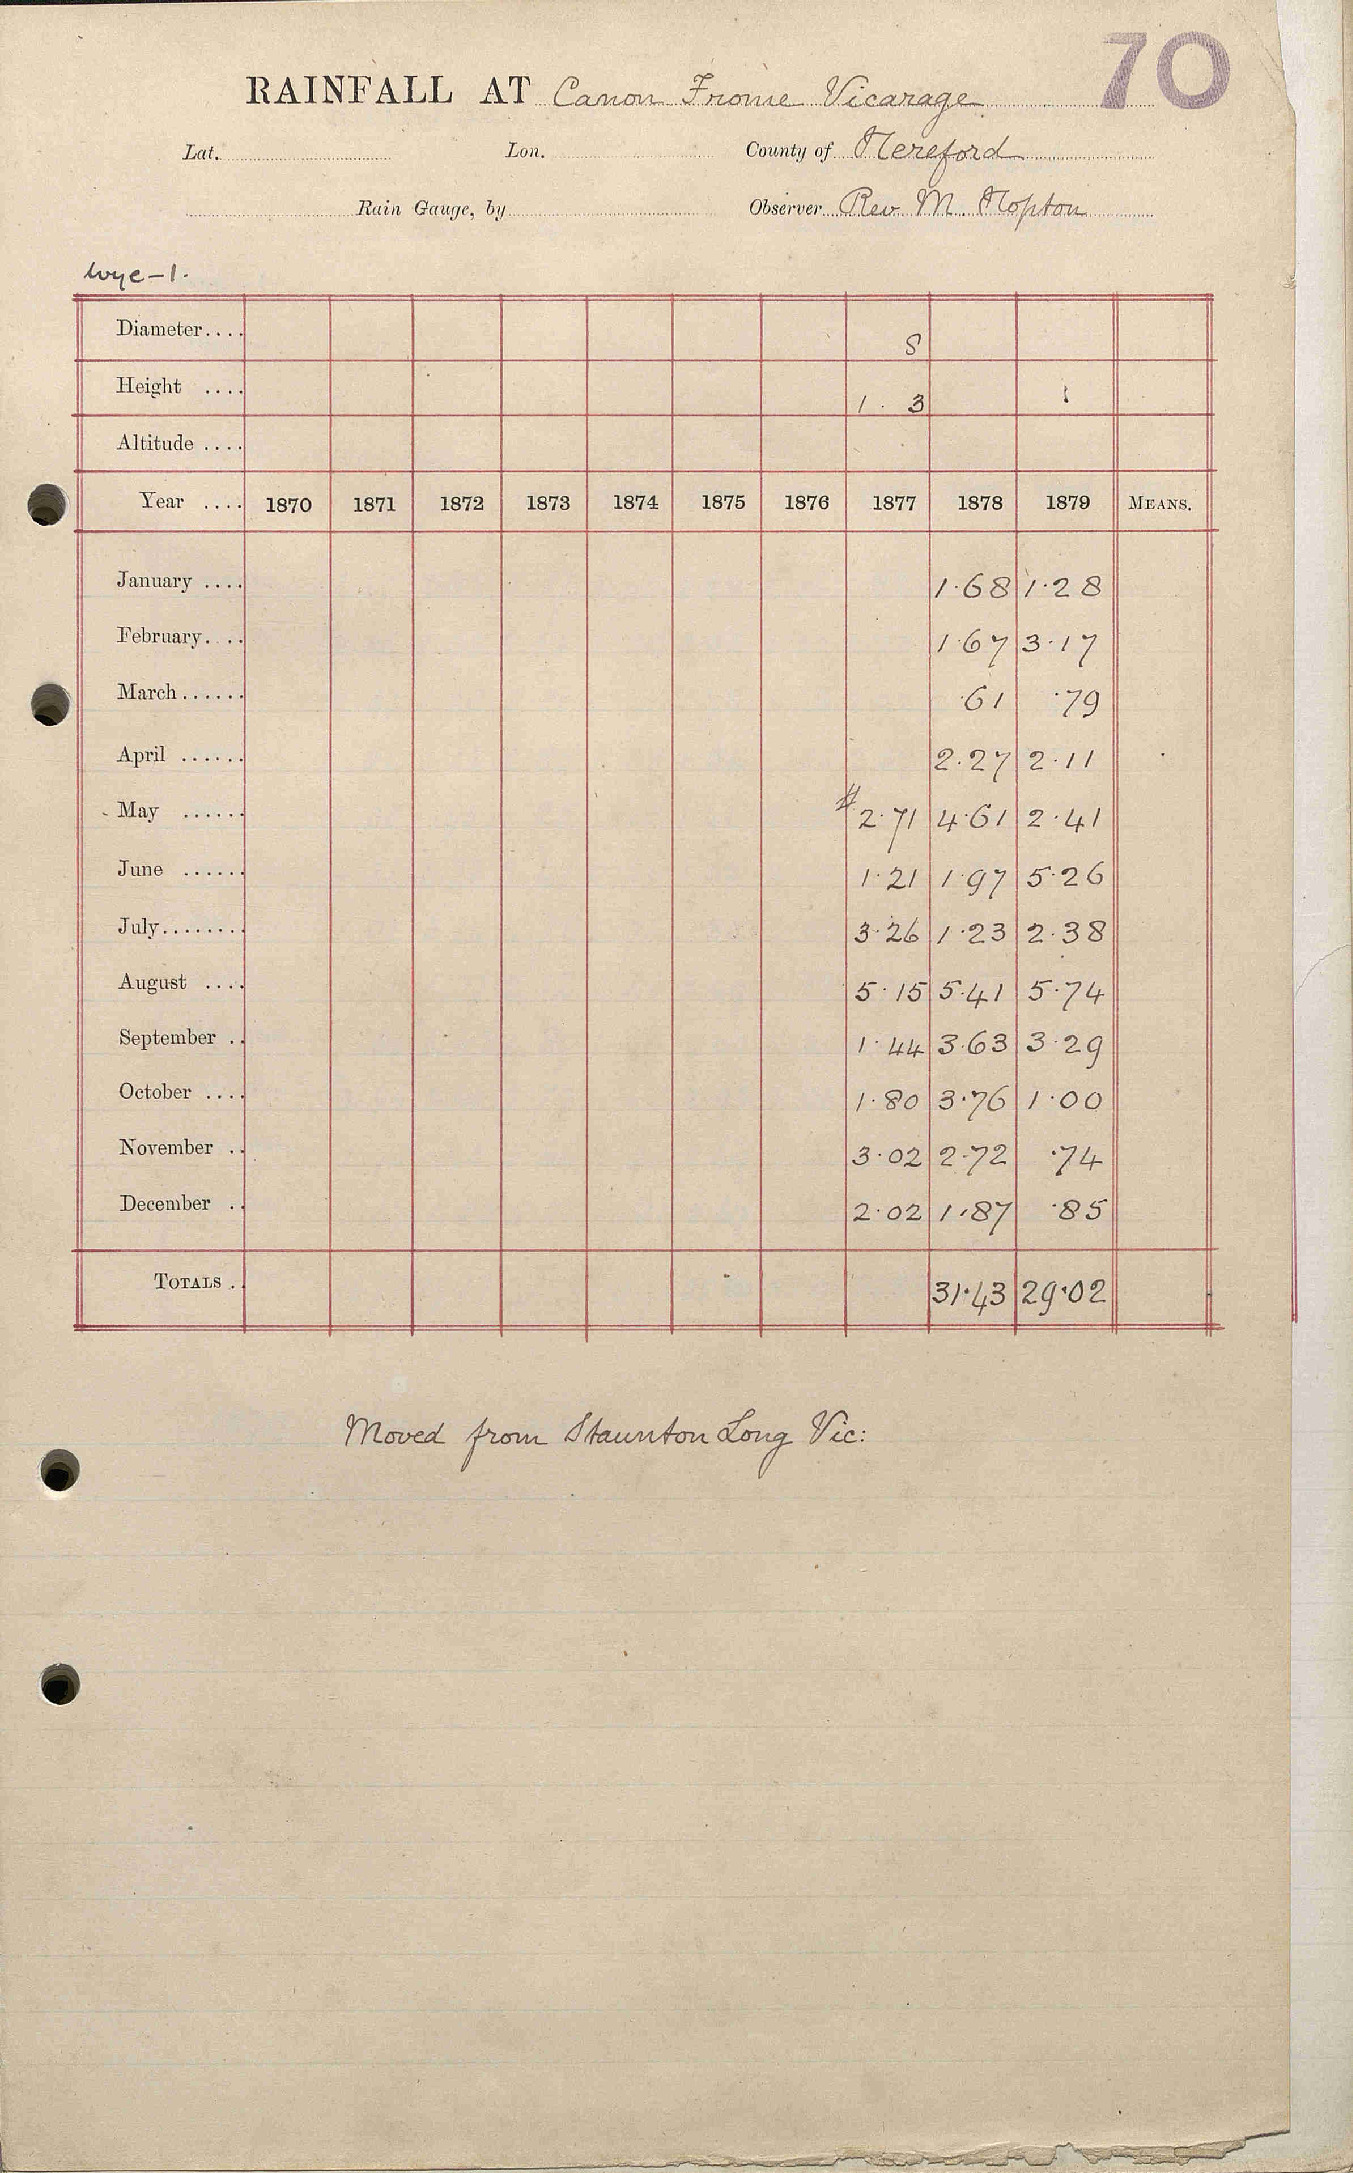 70
RAINFALL AT Canon Frome Vicarage
Lat. Lon. County of Hereford
Rain Gauge, by Observer Rev M. Hopton
Wye-1.
Diameter.... 8
Height .... 1. 3
Altitude ....
Year .... 1870 1871 1872 1873 1874 1875 1876 1877 1878 1879 MEANS.
January .... 1.68 1.28
February.... 1.67 3.17
March...... .61 .79
April ...... 2.27 2.11
May ...... #2.71 4.61 2.41
June ...... 1.21 1.97 5.26
July........ 3.26 1.23 2.38
August .... 5.15 5.41 5.74
September .. 1.44 3.63 3.29
October .... 1.80 3.76 1.00
November .. 3.02 2.72 .74
December .. 2.02 1.87 .85
TOTALS .. 31.43 29.02
Moved from Staunton Long Vic: